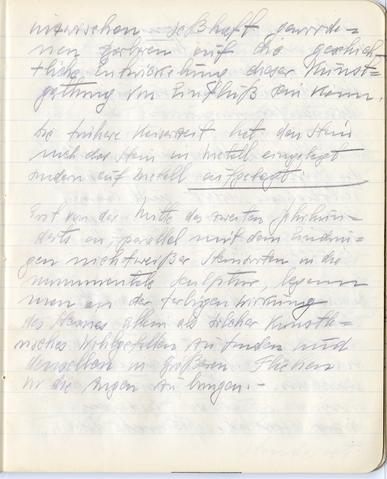 inzwischen seßhaft geworde=
nen Gotten auf die geschich=
tliche Entwickelung dieser Kunst=
gattung von Einfluß sein kann.
Die frühere Kaiserzeit hat den Stein
nicht das Stein in Metall eingelegt
sondern auf Metall aufgelegt.
Erst von der Mitte des zweiten Jahrhun=
derts an, parallel mit dem Eindrin=
gen nichtweißer Steinarten in die
monumentale Skulptur, begann
man an der farbigen Wirkung
des Steines allein als solcher künstle=
risches Wohlgefallen zu finden und
denselben in größeren Flächen
vor die Augen zu bringen. -